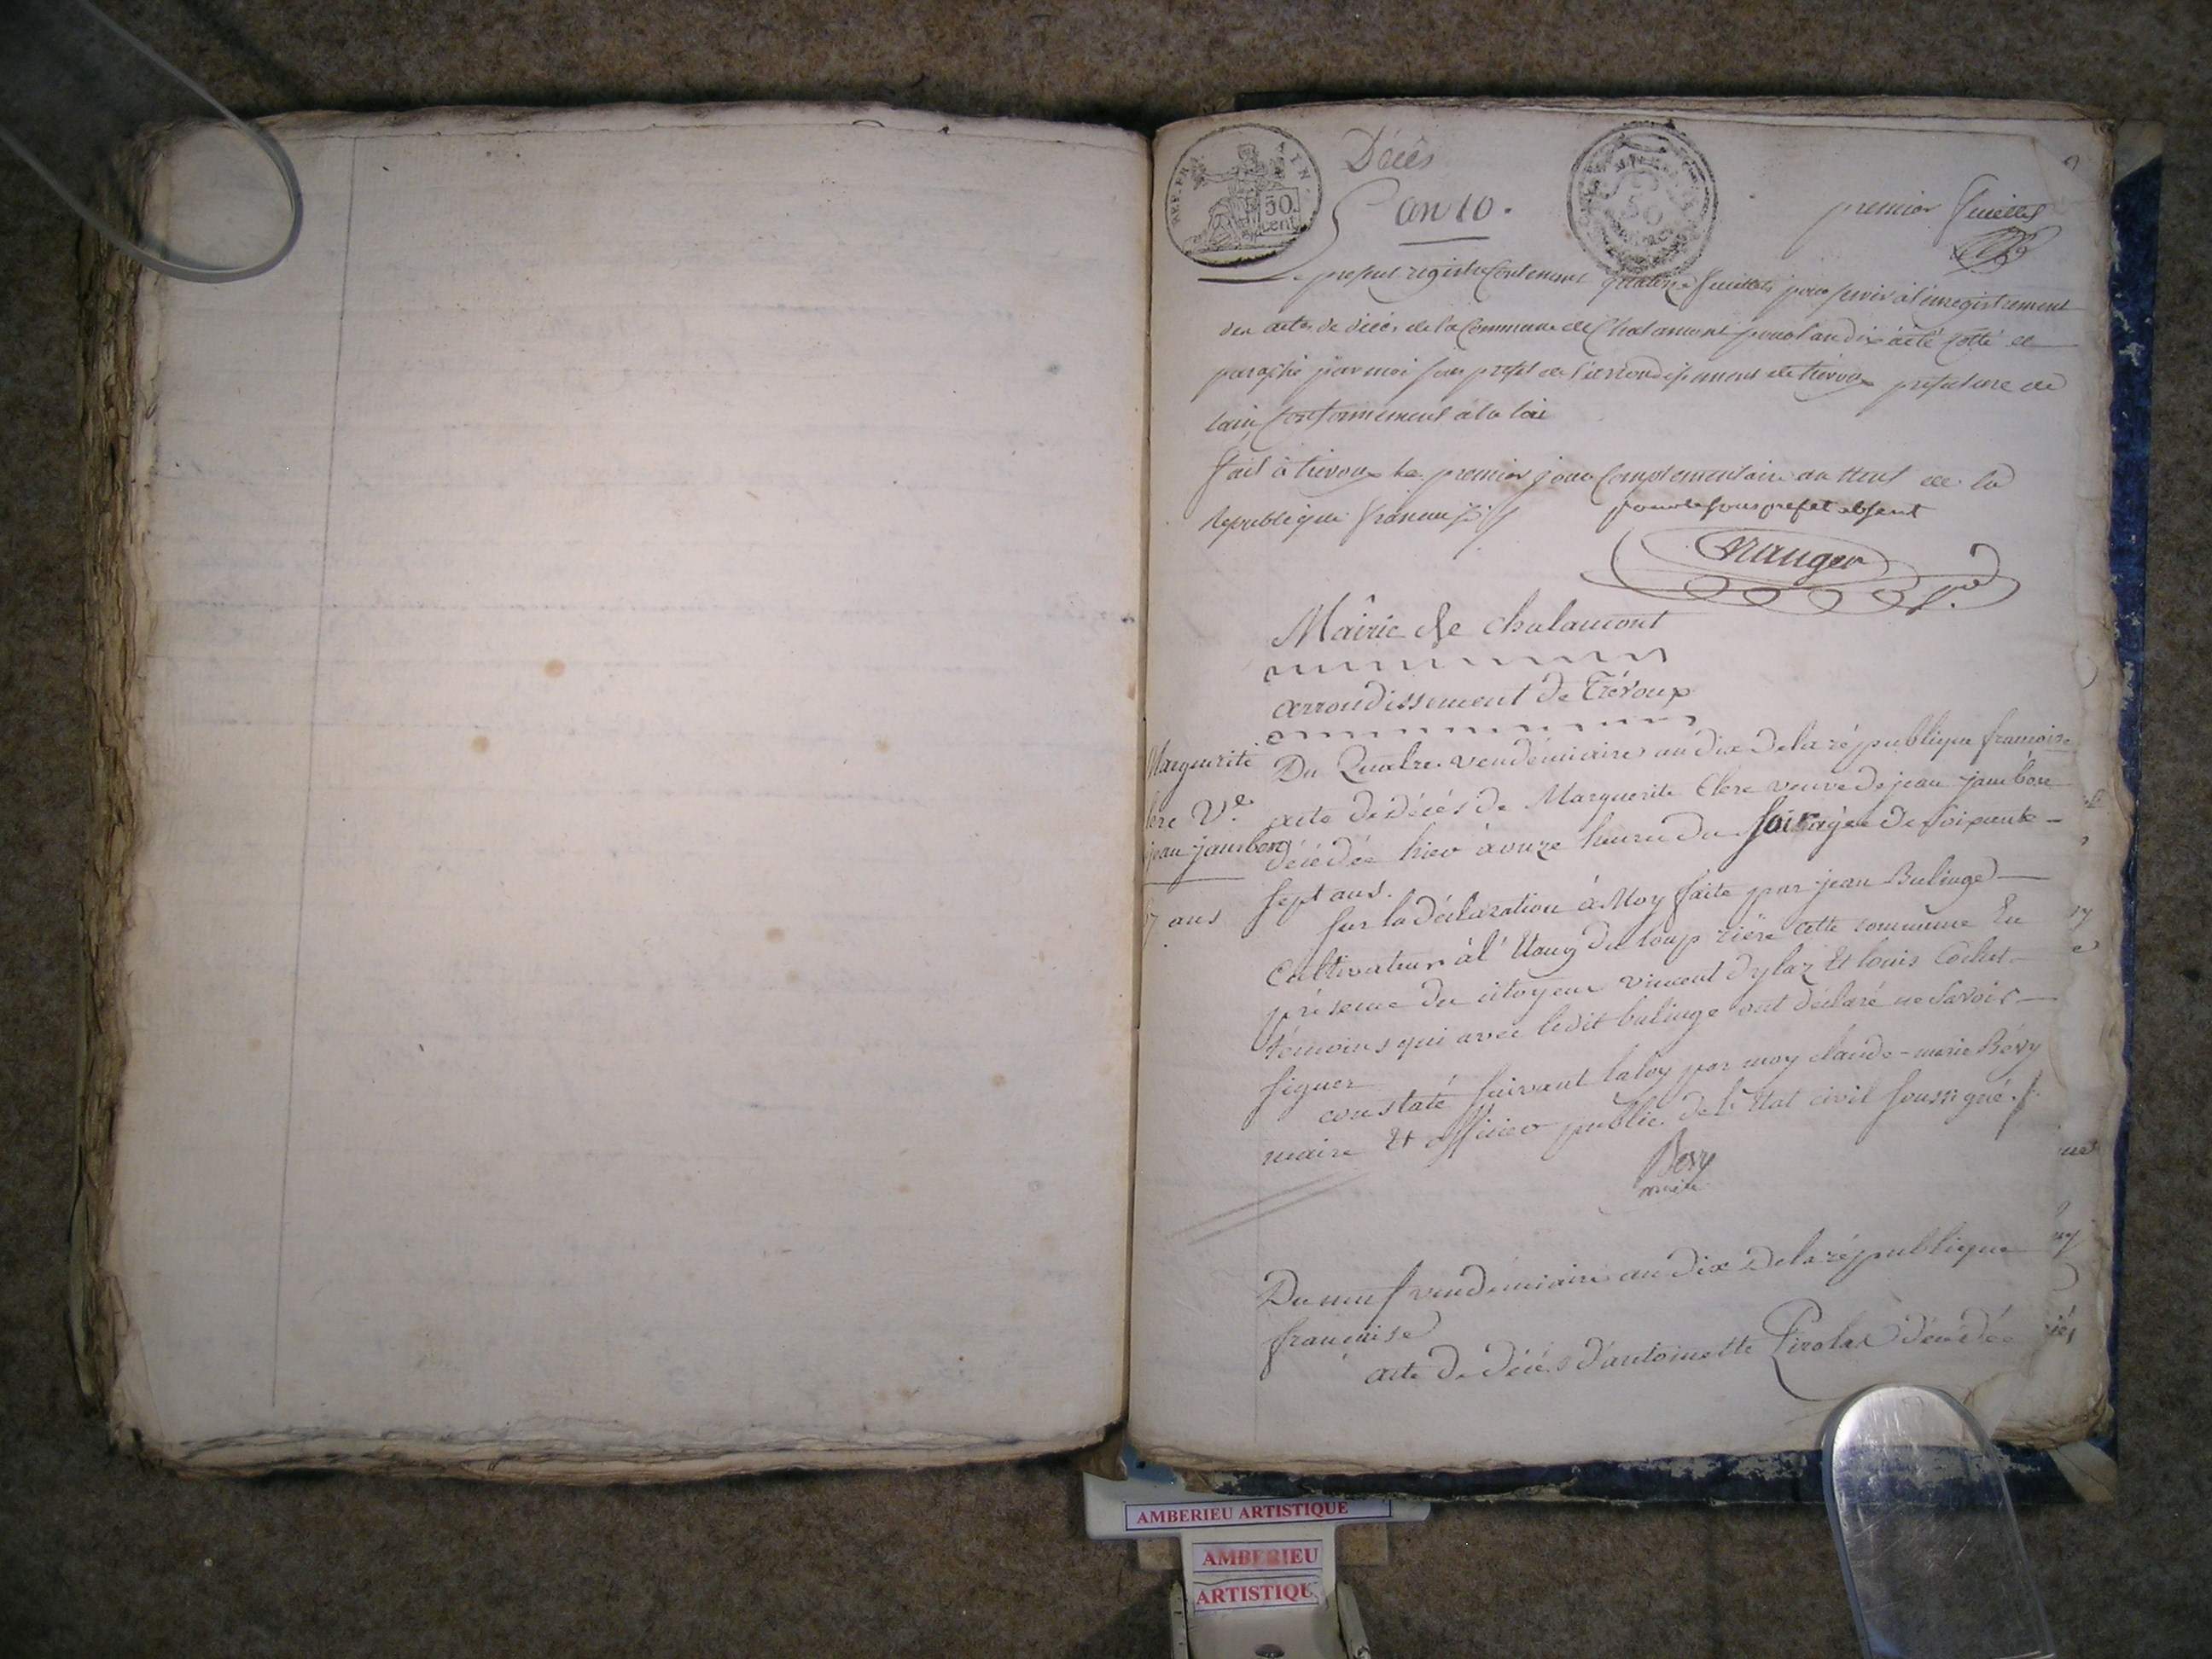 Décès
an 10.
premier feuillet
REP. FRA
AIN.
50
cent.
Le present registre Contenant quatorze feuillets pour servir à l'enregistrement
des actes de décès de la Commune de Chalamont pour l'an dix a été Cotté et
paraphé par moi sous prefet de l'arrondissement de trévoux prefecture de
l'ain, Conformement à la loi
fait à trevoux le premier jour Complementaire an neuf de la
republique francaise
pour le sous prefet absent
Mâirie de chalamont
arrondissement de Trévoux
Marguerite
lerc Ve.
jean jambon
7 ans
Du Quatre vendémiaire an dix de la république francoise
acte de décés de Marguerite Clerc veuve de jean jambon
décédée hier à onze heures du soir agée de soixante-
sept ans.
sur la déclaration à Moy faite par jean Bulinge
Cultivateur à l'Etang du loup rière cette commune En
présence des citoyens vincent Dylaz Et louis Cochet
témoins qui avec ledit bulinge ont déclaré ne savoir
signer
constaté suivant la loy par moy claude-marie Bévy
maire Et officier public de l'Etat civil soussigné.
Bevy
maire
Du neuf vendémiaire an dix de la république
française
acte de décés d'antoinette Pirolas décédée
AMBERIEU ARTISTIQUE
AMBERIEU
ARTISTIQU